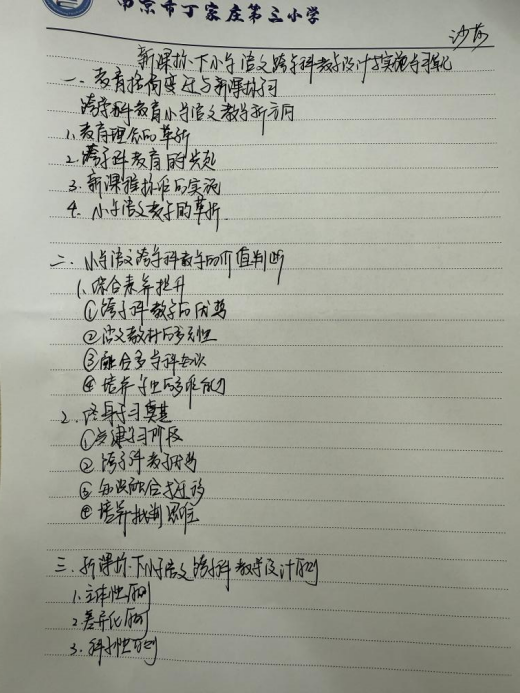 南京市丁家庄第三小学
沙莎
新课标下小学语文跨学科教学设计与实施与优化
一、教育格局变迁与新课标学习
跨学科教育小学语文教学新方向
1.教育理念的革新
2.跨学科教育的兴起
3.新课程标准的实施
4.小学语文教学的革新.
二、小学语文跨学科教学的价值判断
1.综合素养提升
①跨学科教学的优势
②语文教材的多元性
③融合多学科知识
④培养学生的多维能力
2.终身学习奠基
①关键学习阶段
②跨学科教学优势
③知识融合与迁移
④培养批判思维
三、新课标下小学语文跨学科教学设计原则
1.立体性原则
2.差异化原则
3.科学性原则